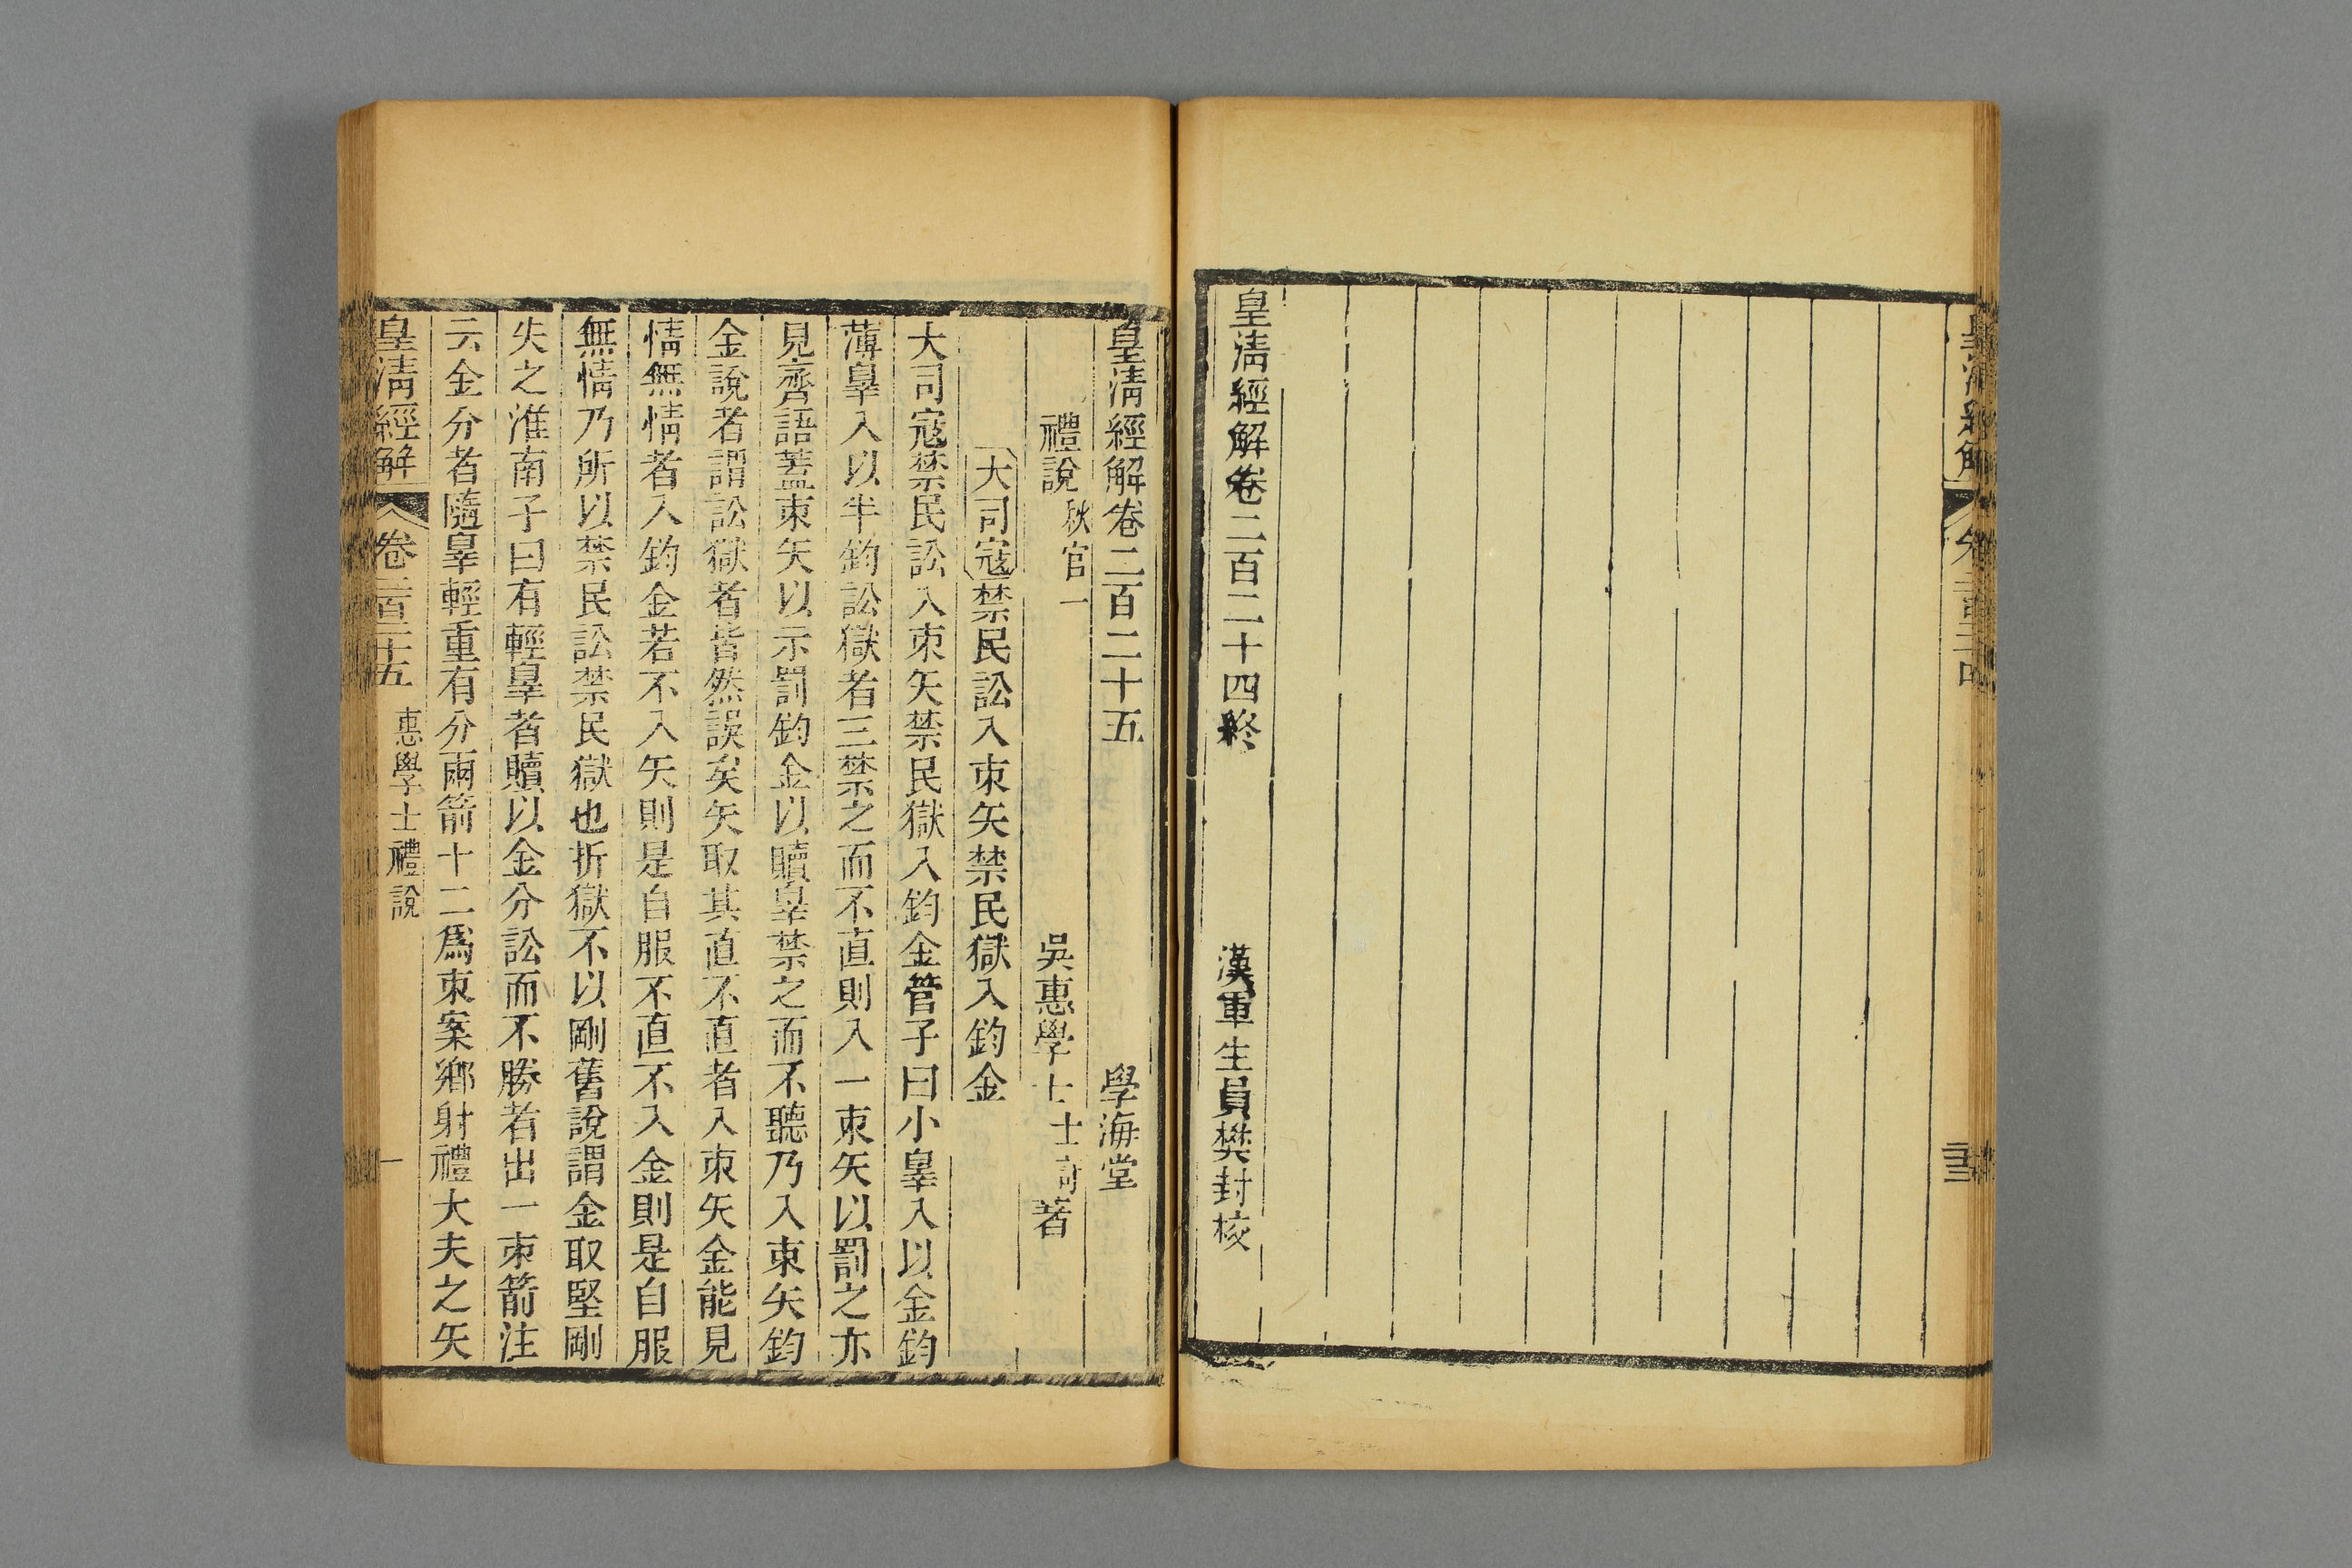 皇清經解
皇清經解卷二百二十四終 漢軍生員樊封校
皇清經解卷二百二十五 學海堂
禮說 秋官一 吳惠學士士奇著
大司寇禁民訟入束矢禁民獄入鈞金
大司寇禁民訟入束矢禁民獄入鈞金管子曰小辠入以金鈞
薄辠入以半鈞訟獄者三禁之而不直則入一束矢以罰之亦
見齊語蓋束矢以示罰鈞金以贖辠禁之而不聽乃入束矢鈞
金說者謂訟獄者皆然誤矣矢取其直不直者入束矢金能見
情無情者入鈞金若不入矢則是自服不直不入金則是自服
無情乃所以禁民訟禁民獄也折獄不以剛舊說謂金取堅剛
失之淮南子曰有輕辠者贖以金分訟而不勝者出一束箭注
云金分者隨辠輕重有分兩箭十二爲束案鄉射禮大夫之矢
皇清經解 卷二百二十五 惠學士禮說 一